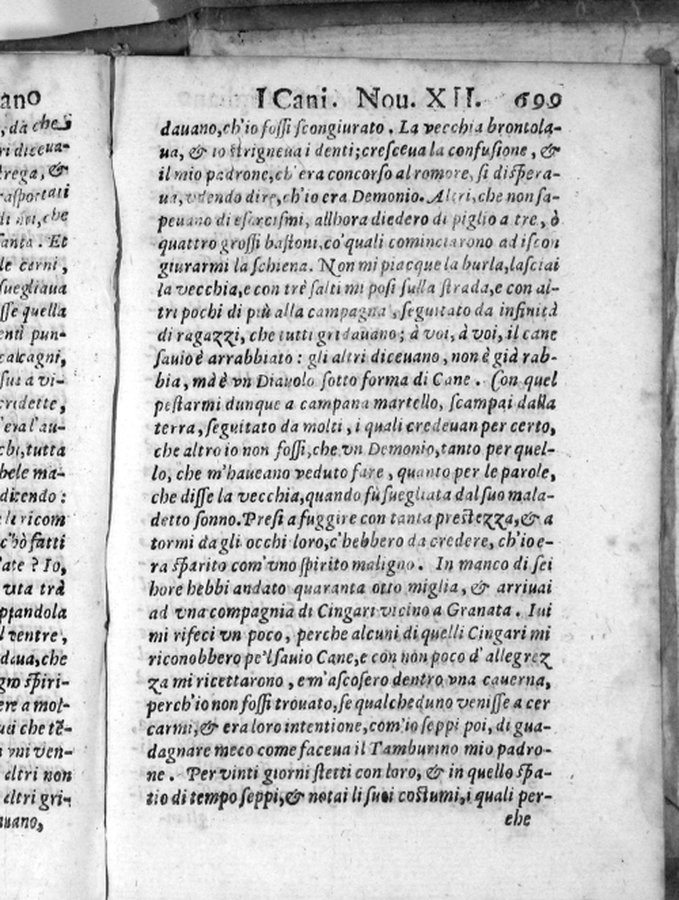 ano
, dà che
ri diceua-
trega, &
rasportati
di noi, che
santa. Et
le cerni,
suegliaua
sse quella
enti pun-
calcagni,
sui a vi-
credette,
'era l'au-
chi, tutta
bele ma-
dicendo:
le li ricom
c'hò fatti
ate? Io,
vita trà
ppiandola
l ventre,
deua, che
gno spiri-
ere a mol-
uei che tē-
n vni ven-
eltri non
eltri gri-
uano,
I Cani. Nou. XII. 699
dauano, ch'io fossi scongiurato. La vecchia brontola-
ua, & io strigneua i denti; cresceua la confusione, &
il mio padrone, ch'era concorso al romore, si dispera-
ua, vdendo dire, ch'io era Demonio. Altri, che non sa-
peuano di esorcismi, allhora diedero di piglio a tre, ò
quattro grossi bastoni, co'quali cominciarono ad iscon
giurarmi la schiena. Non mi piacque la burla, lasciai
la vecchia, e con trè salti mi posi sulla strada, e con al-
tri pochi di più alla campagna, seguitato da infinità
di ragazzi, che tutti gridauano; à voi, à voi, il cane
sauio è arrabbiato: gli altri diceuano, non è già rab-
bia, mà è vn Diauolo sotto forma di Cane. Con quel
pestarmi dunque a campana martello, scampai dalla
terra, seguitato da molti, i quali credeuan per certo,
che altro io non fossi, che vn Demonio, tanto per quel-
lo, che m'haueano veduto fare, quanto per le parole,
che disse la vecchia, quando fù suegliata dal suo mala-
detto sonno. Presi a fuggire con tanta prestezza, & a
tormi dagli occhi loro, c'hebbero da credere, ch'io e-
ra sparito com'vno spirito maligno. In manco di sei
hore hebbi andato quaranta otto miglia, & arriuai
ad vna compagnia di Cingari vicino a Granata. Iui
mi rifeci vn poco, perche alcuni di quelli Cingari mi
riconobbero pe'l sauio Cane, e con non poco d'allegrez
za mi ricettarono, e m'ascosero dentro vna cauerna,
perch'io non fossi trouato, se qualcheduno venisse a cer
carmi, & era loro intentione, com'io seppi poi, di gua-
dagnare meco come faceua il Tamburino mio padro-
ne. Per vinti giorni stetti con loro, & in quello spa-
tio di tempo seppi, & notai li suoi costumi, i quali per-
che